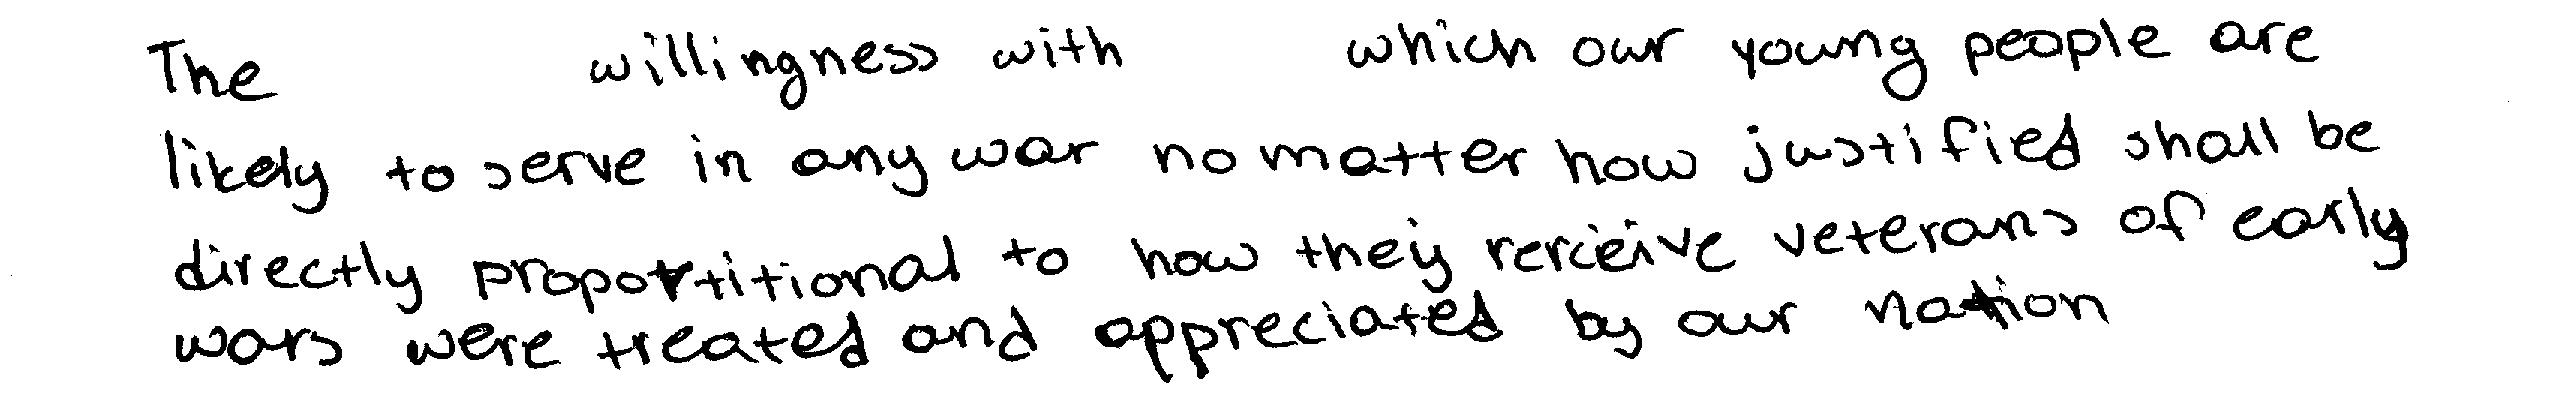 The willingness with which our young people are
likely to serve in any war no matter how justified shall be
directly proportitional to how they rerceive veterans of early
wars were treated and appreciated by our nation